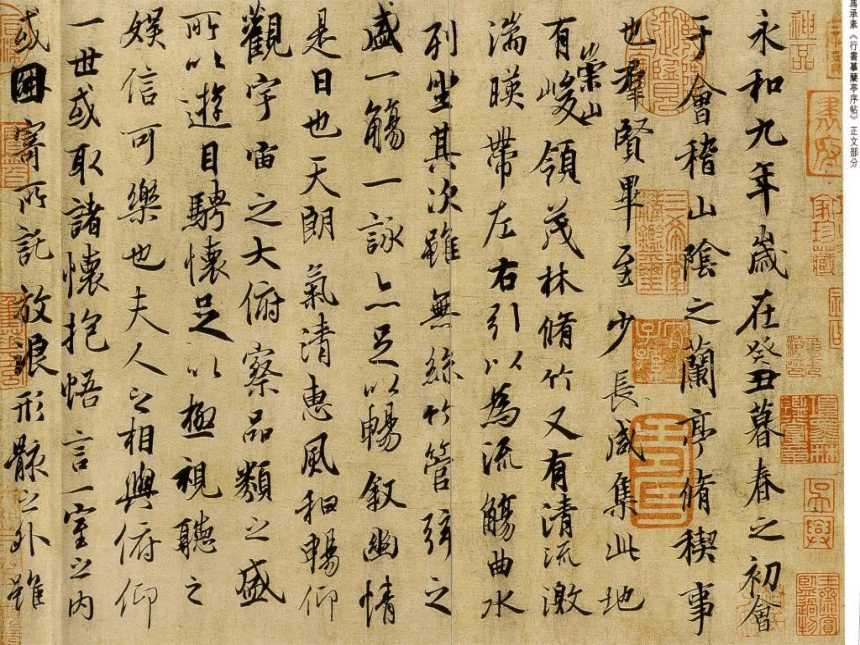 馮承素《行書摹蘭亭序帖》正文部分
永和九年歲在癸丑暮春之初會
于會稽山陰之蘭亭脩稧事
也羣賢畢至少長咸集此地
有崇山峻領茂林脩竹又有清流激
湍暎帶左右引以為流觴曲水
列坐其次雖無絲竹管弦之
盛一觴一詠亦足以暢叙幽情
是日也天朗氣清惠風和暢仰
觀宇宙之大俯察品類之盛
所以遊目騁懷足以極視聽之
娛信可樂也夫人之相與俯仰
一世或取諸懷抱悟言一室之內
或因寄所託放浪形骸之外雖
神品